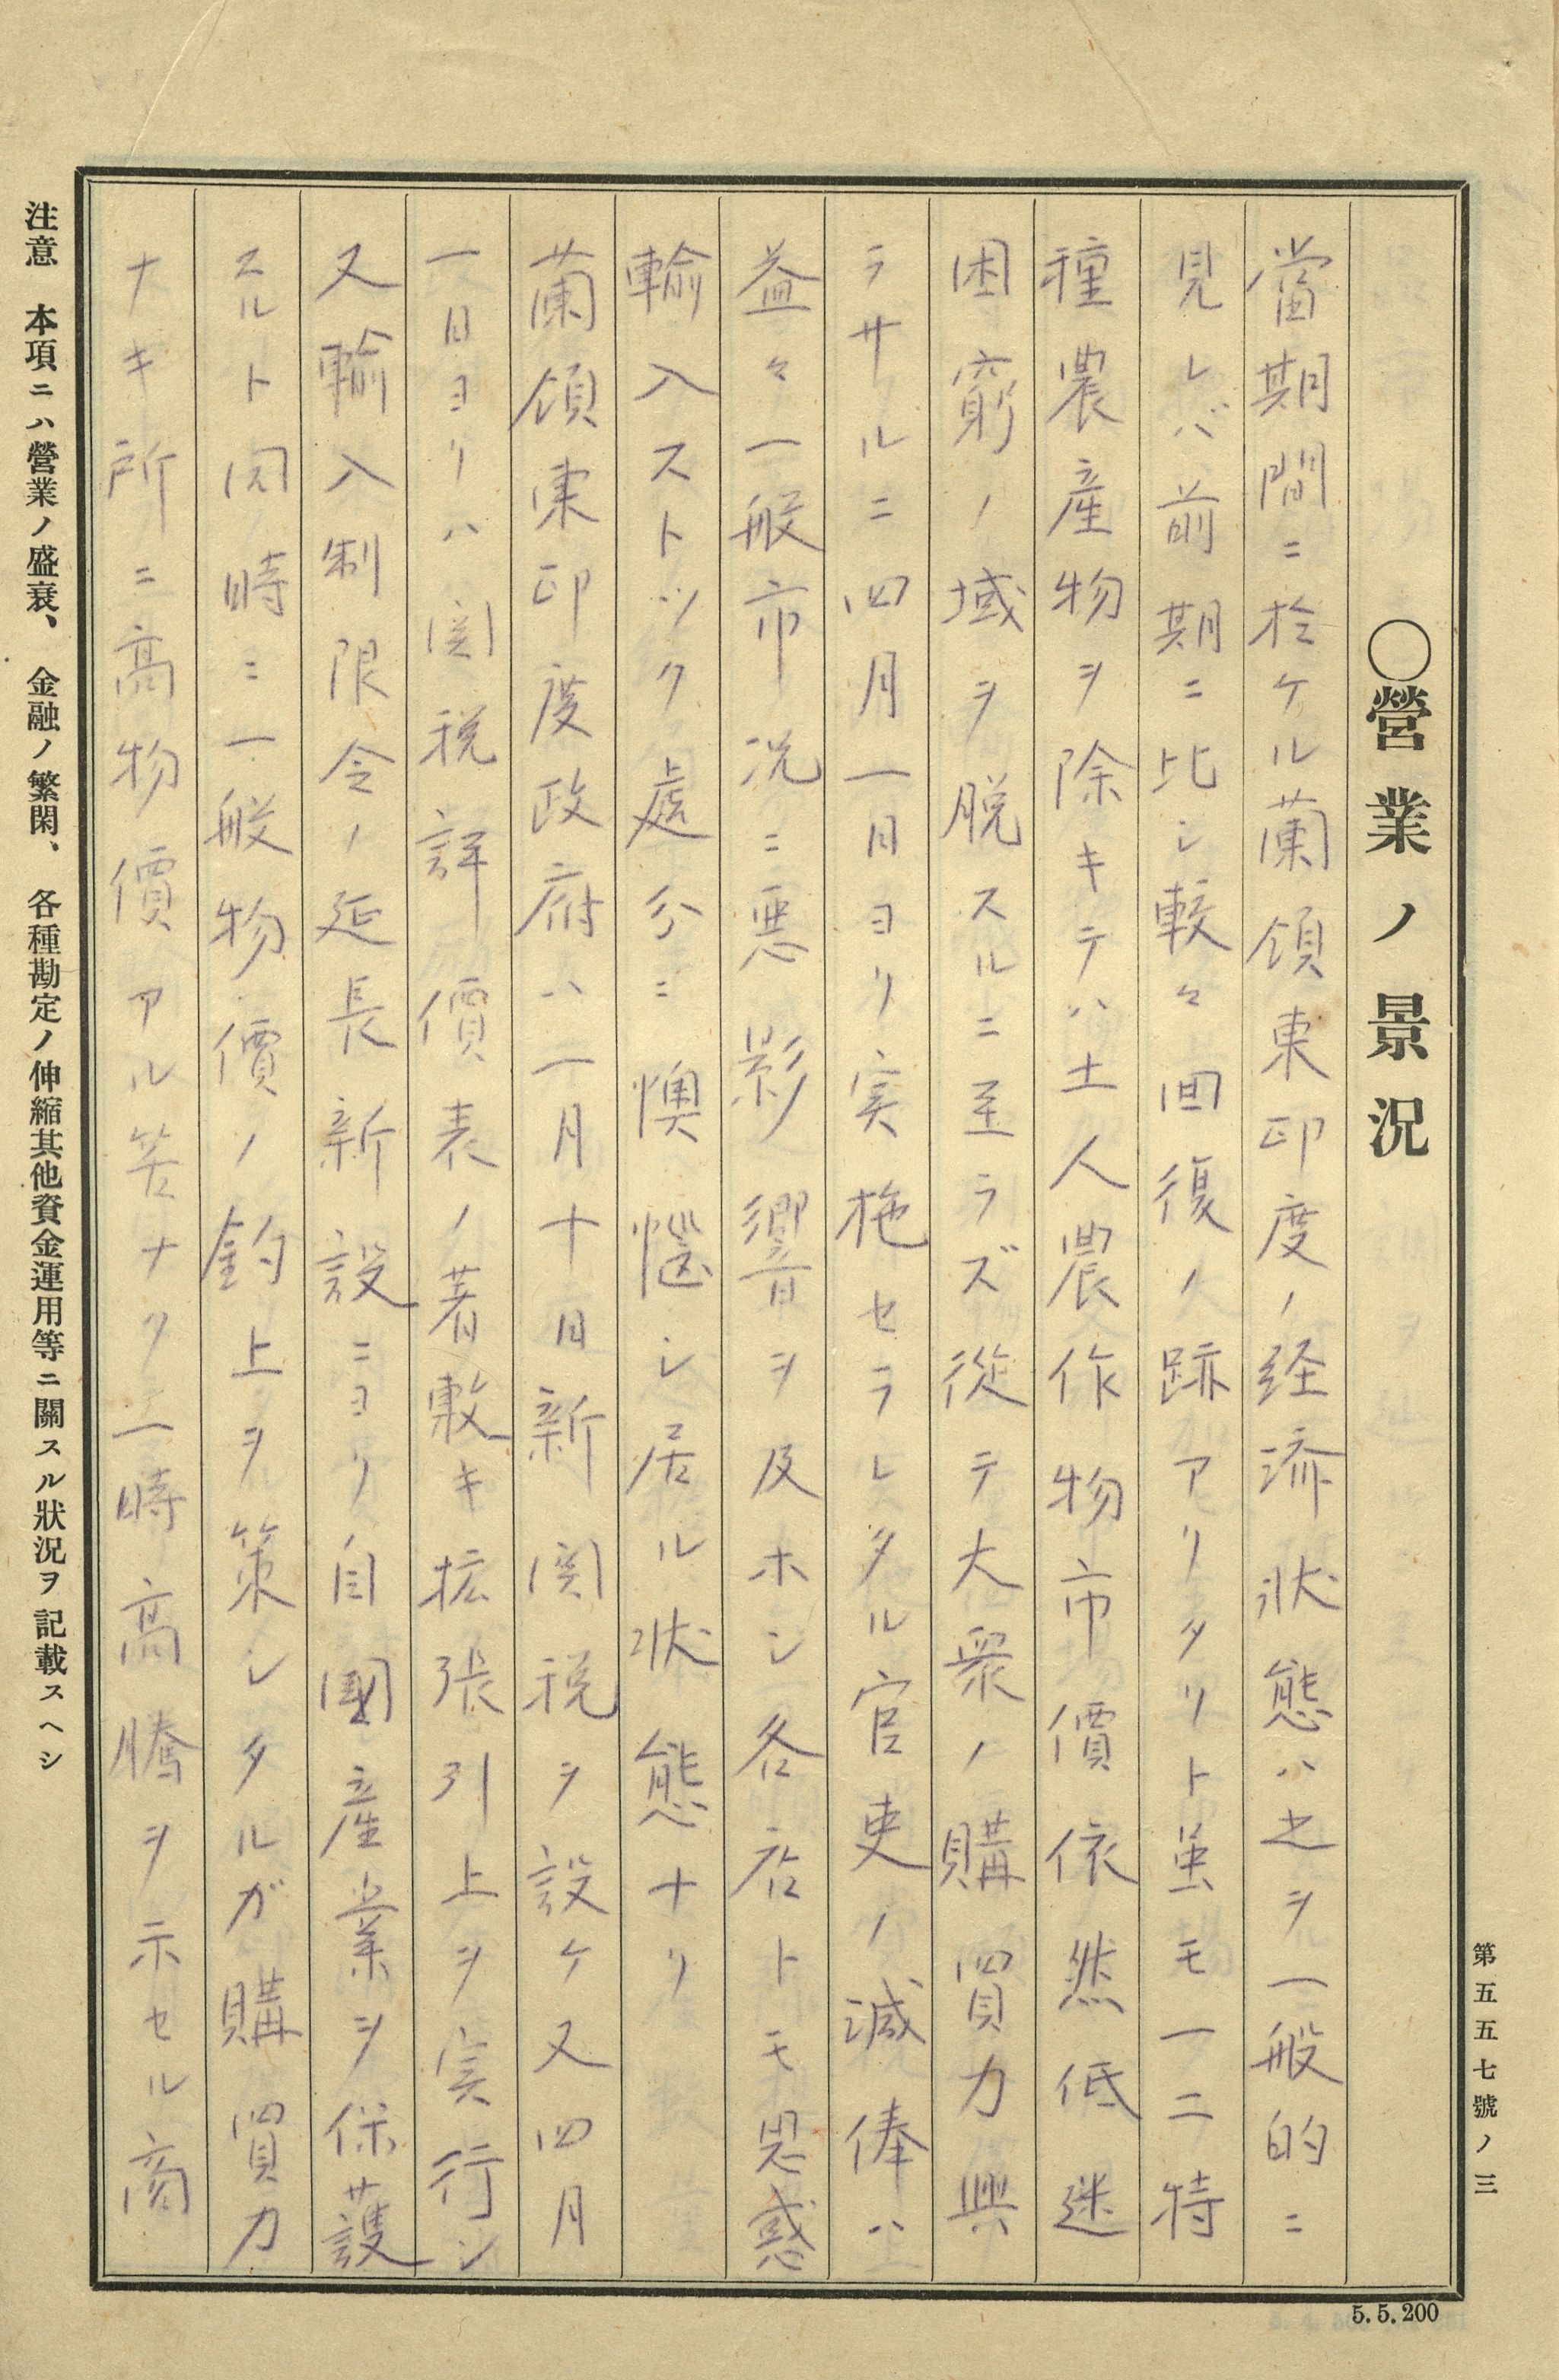 〇營業ノ景況
當期間ニ於ケル蘭領東印度ノ経済状態ハ之ヲ一般的ニ
見レバ前期ニ比シ較々回復ノ跡アリタリト虽モ一二特
種農産物ヲ除キテハ土人農作物市價依然低迷
困窮ノ域ヲ脱スルニ至ラズ従テ大衆ノ購買力興
ラサルニ四月一日ヨリ実施セラレタル官吏ノ減俸ハ
益々一般市況ニ悪影響ヲ及ホシ各店トモ思惑
輸入ストック處分ニ懊惱シ居ル状態ナリ
蘭領東印度政府ハ一月十日新関税ヲ設ケ又四月
一日ヨリハ関税評價表ノ著敷キ拡張引上ヲ実行シ
又輸入制限令ノ延長新設ニヨリ自國産業ヲ保護
スルト同時ニ一般物價ノ釣上ヲ策シタルガ購買力
ナキ所ニ高物價アル筈ナク一時高騰ヲ示セル商
注意　本項ニハ營業ノ盛衰、金融ノ繁閑、各種勘定ノ伸縮其他資金運用等ニ關スル狀況ヲ記載スヘシ
第五五七號ノ三
5.5.200